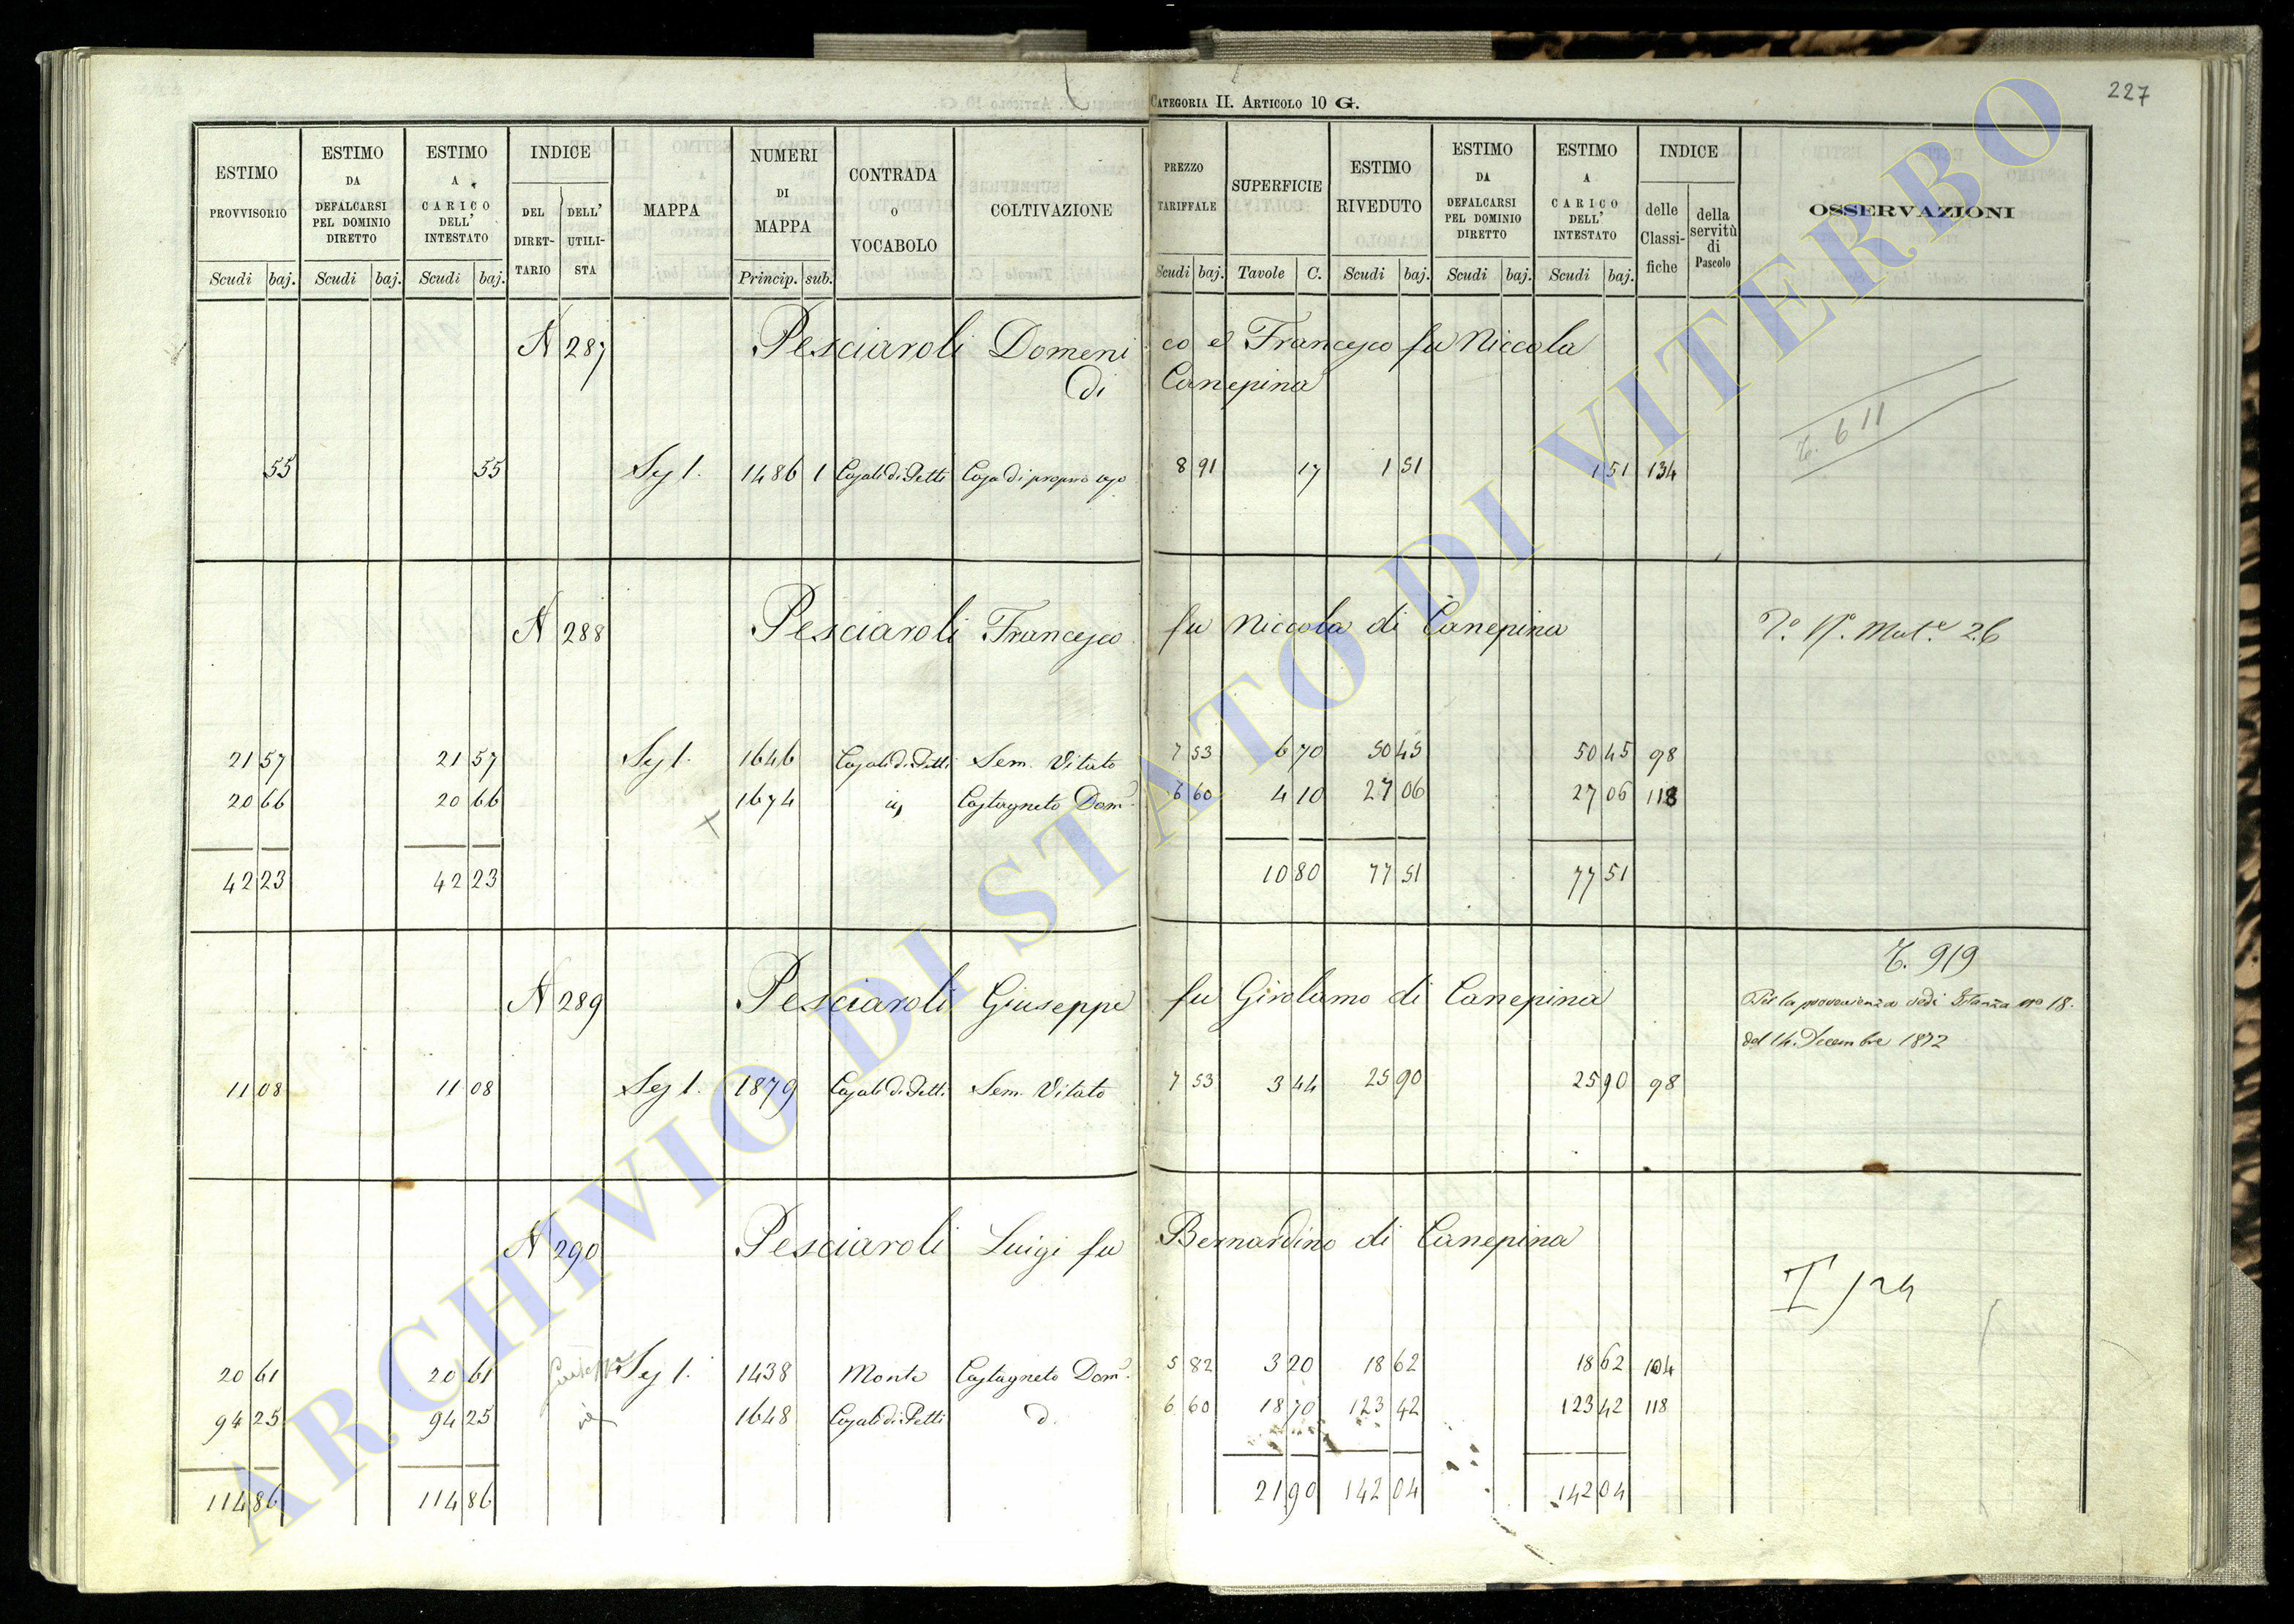 227
CATEGORIA II. ARTICOLO 10 G.
ESTIMO PROVVISORIO Scudi baj.
ESTIMO DA DEFALCARSI PEL DOMINIO DIRETTO Scudi baj.
ESTIMO A CARICO DELL' INTESTATO Scudi baj.
INDICE DEL DIRET-TARIO DELL' UTILI-STA
MAPPA
NUMERI DI MAPPA Princip. sub.
CONTRADA O VOCABOLO
COLTIVAZIONE
PREZZO TARIFFALE Scudi baj.
SUPERFICIE Tavole C.
ESTIMO RIVEDUTO Scudi baj.
ESTIMO DA DEFALCARSI PEL DOMINIO DIRETTO Scudi baj.
ESTIMO A CARICO DELL' INTESTATO Scudi baj.
INDICE delle Classi-fiche della servitù di Pascolo
OSSERVAZIONI
N 287 Pesciaroli Domeni co e Francesco fu Niccola
di Canepina
T. 611
55 55 Sez 1. 1486 1 Casali di Petti Casa di proprio uso 8 91 17 1 51 1 51 134
N 288 Pesciaroli Francesco fu Niccola di Canepina
26
21 57 21 57 Sez 1. 1646 Casali di Petti Sem. Vitato 7 53 6 70 50 45 50 45 98
20 66 20 66 1674 Castagneto Dom. 6 60 4 10 27 06 27 06 118
42 23 42 23 10 80 77 51 77 51
T. 919
N 289 Pesciaroli Giuseppe fu Girolamo di Canepina
Per la provenienza vedi Istanza no 18.
del 14. Decembre 1872
11 08 11 08 Sez 1. 1879 Casali di Petti Sem. Vitato 7 53 3 44 25 90 25 90 98
N 290 Pesciaroli Luigi fu Bernardino di Canepina
20 61 20 61 Giuseppe Sez 1. 1438 Monte Castagneto Dom. 5 82 3 20 18 62 18 62 104
94 25 94 25 1648 Casali di Petti d. 6 60 18 70 123 42 123 42 118
114 86 114 86 21 90 142 04 142 04
ARCHIVIO DI STATO DI VITERBO